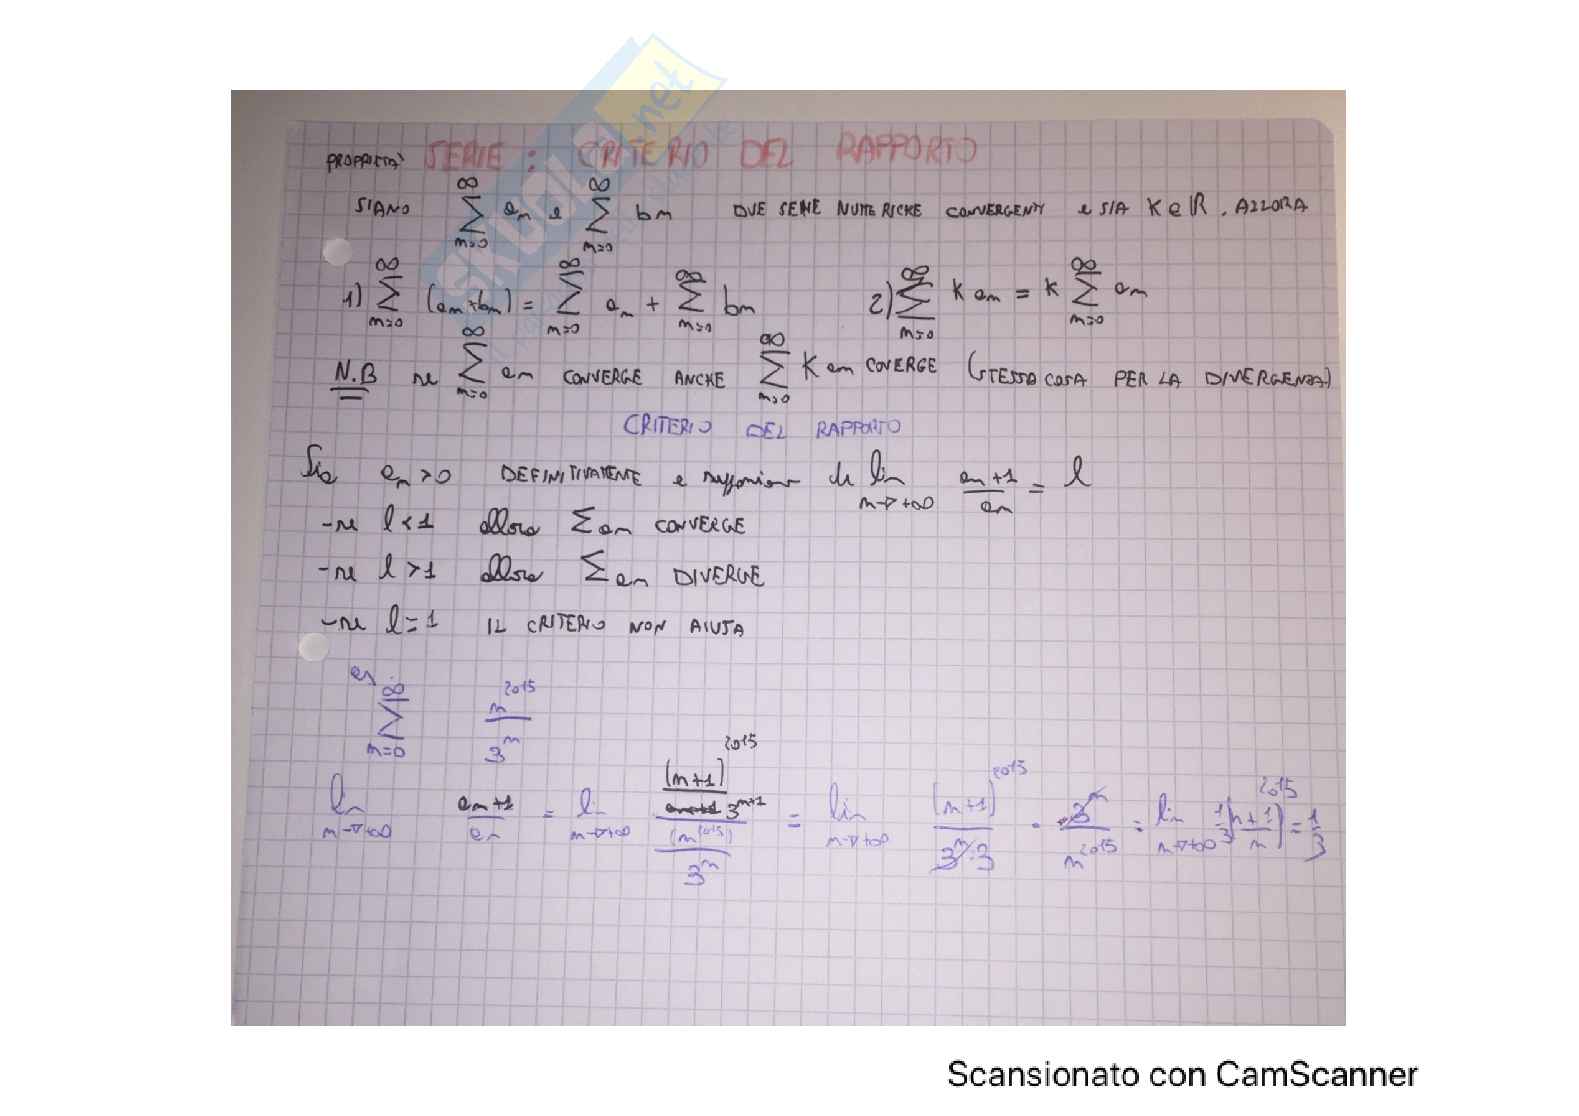 PROPRIETA' SERIE: CRITERIO DEL RAPPORTO
SIANO ∑_{n=0}^{∞} a_n e ∑_{n=0}^{∞} b_n DUE SERIE NUMERICHE CONVERGENTI e SIA K∈ℝ. ALLORA
1) ∑_{n=0}^{∞} (a_n+b_n) = ∑_{n=0}^{∞} a_n + ∑_{n=0}^{∞} b_n 2) ∑_{n=0}^{∞} K a_n = K ∑_{n=0}^{∞} a_n
N.B se ∑_{n=0}^{∞} a_n CONVERGE ANCHE ∑_{n=0}^{∞} K a_n COVERGE (STESSA COSA PER LA DIVERGENZA)
CRITERIO DEL RAPPORTO
Sia a_n>0 DEFINITIVAMENTE e supponiamo che lim_{n→+∞} a_{n+1}/a_n = l
-se l<1 allora ∑a_n CONVERGE
-se l>1 allora ∑a_n DIVERGE
-se l=1 IL CRITERIO NON AIUTA
es
∑_{n=0}^{∞} n^{2015}/3^n
lim_{n→+∞} a_{n+1}/a_n = lim_{n→+∞} ((n+1)^{2015}/3^{n+1})/((n^{2015})/3^n) = lim_{n→+∞} (n+1)^{2015}/(3^n·3) · 3^n/n^{2015} = lim_{n→+∞} 1/3 ((n+1)/n)^{2015} = 1/3
SKUOLA.net
Scansionato con CamScanner